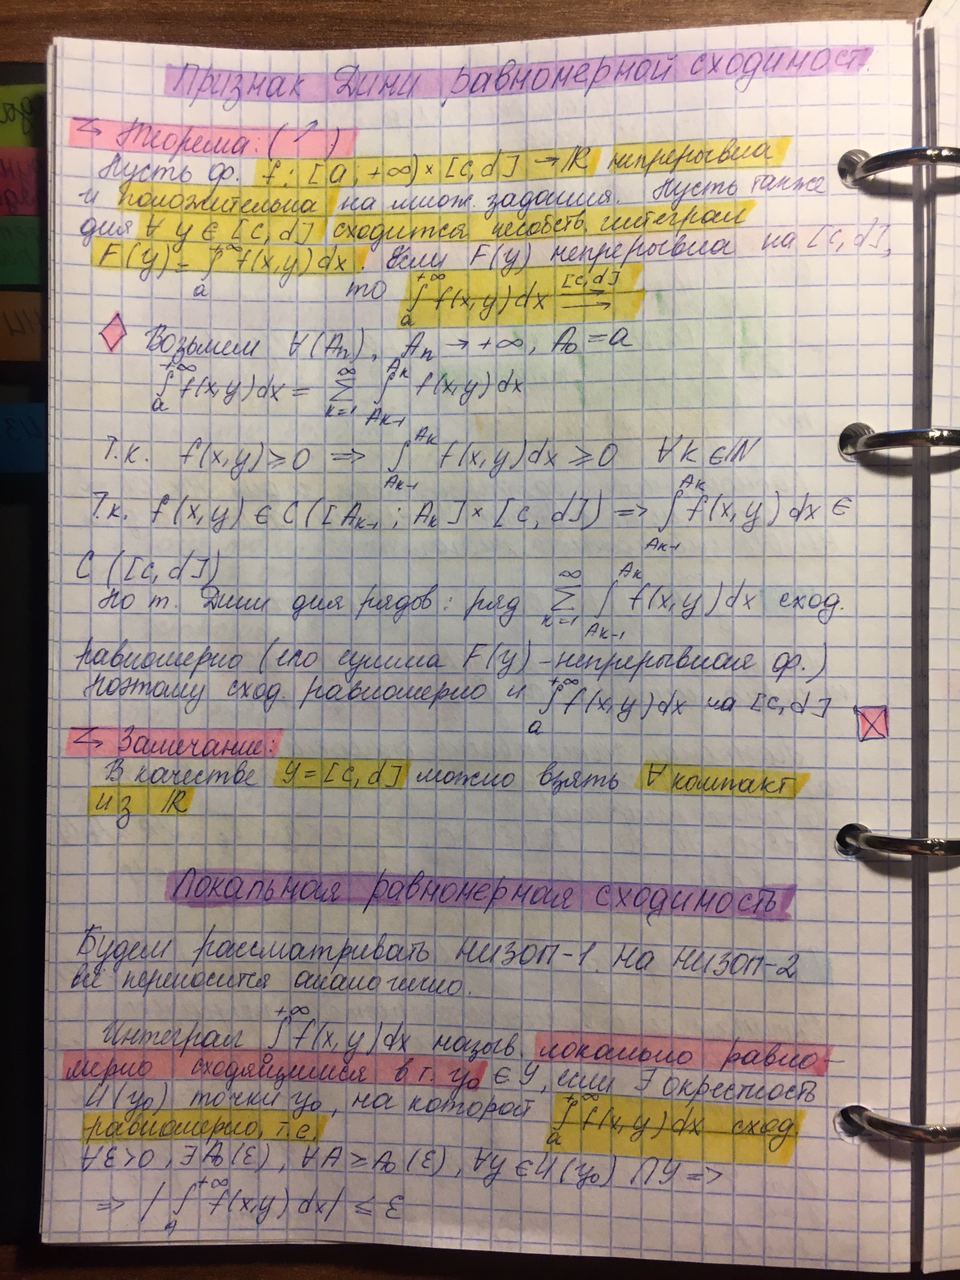 Признак Дини равномерной сходимост.
Теорема: (↑)
Пусть ф. f: [a; +∞) × [c, d] → ℝ непрерывна
и положительна на множ. задания. Пусть также
для ∀ y ∈ [c, d] сходится несобств. интеграл
F(y) = ∫_a^{+∞} f(x,y)dx. Если F(y) непрерывна на [c, d],
то ∫_a^{+∞} f(x,y)dx ⇉^{[c,d]}
Возьмем ∀(Aₙ), Aₙ → +∞, A₀ = a
∫_a^{+∞} f(x,y)dx = ∑_{k=1}^{∞} ∫_{A_{k-1}}^{A_k} f(x,y)dx
Т.к. f(x,y) ⩾ 0 ⇒ ∫_{A_{k-1}}^{A_k} f(x,y)dx ⩾ 0 ∀k ∈ ℕ
Т.к. f(x,y) ∈ C([A_{k-1}; A_k] × [c, d]) ⇒ ∫_{A_{k-1}}^{A_k} f(x,y)dx ∈
C([c, d])
По т. Дини для рядов: ряд ∑_{k=1}^{∞} ∫_{A_{k-1}}^{A_k} f(x,y)dx сход.
равномерно (его сумма F(y) - непрерывная ф.)
Поэтому сход. равномерно и ∫_a^{+∞} f(x,y)dx на [c, d]
Замечание:
В качестве Y = [c, d] можно взять ∀ компакт
из ℝ
Локальная равномерная сходимость
Будем рассматривать НИЗОП-1. На НИЗОП-2
всё переносится аналогично.
Интеграл ∫_a^{+∞} f(x,y)dx назыв. локально равно-
мерно сходящимся в т. y₀ ∈ Y, если ∃ окрестность
U(y₀) точки y₀, на которой ∫_a^{+∞} f(x,y)dx сход
равномерно, т.е.
∀ε>0, ∃A₀(ε), ∀A ⩾ A₀(ε), ∀y∈U(y₀) ∩ Y ⇒
⇒ |∫_A^{+∞} f(x,y) dx| ⩽ ε